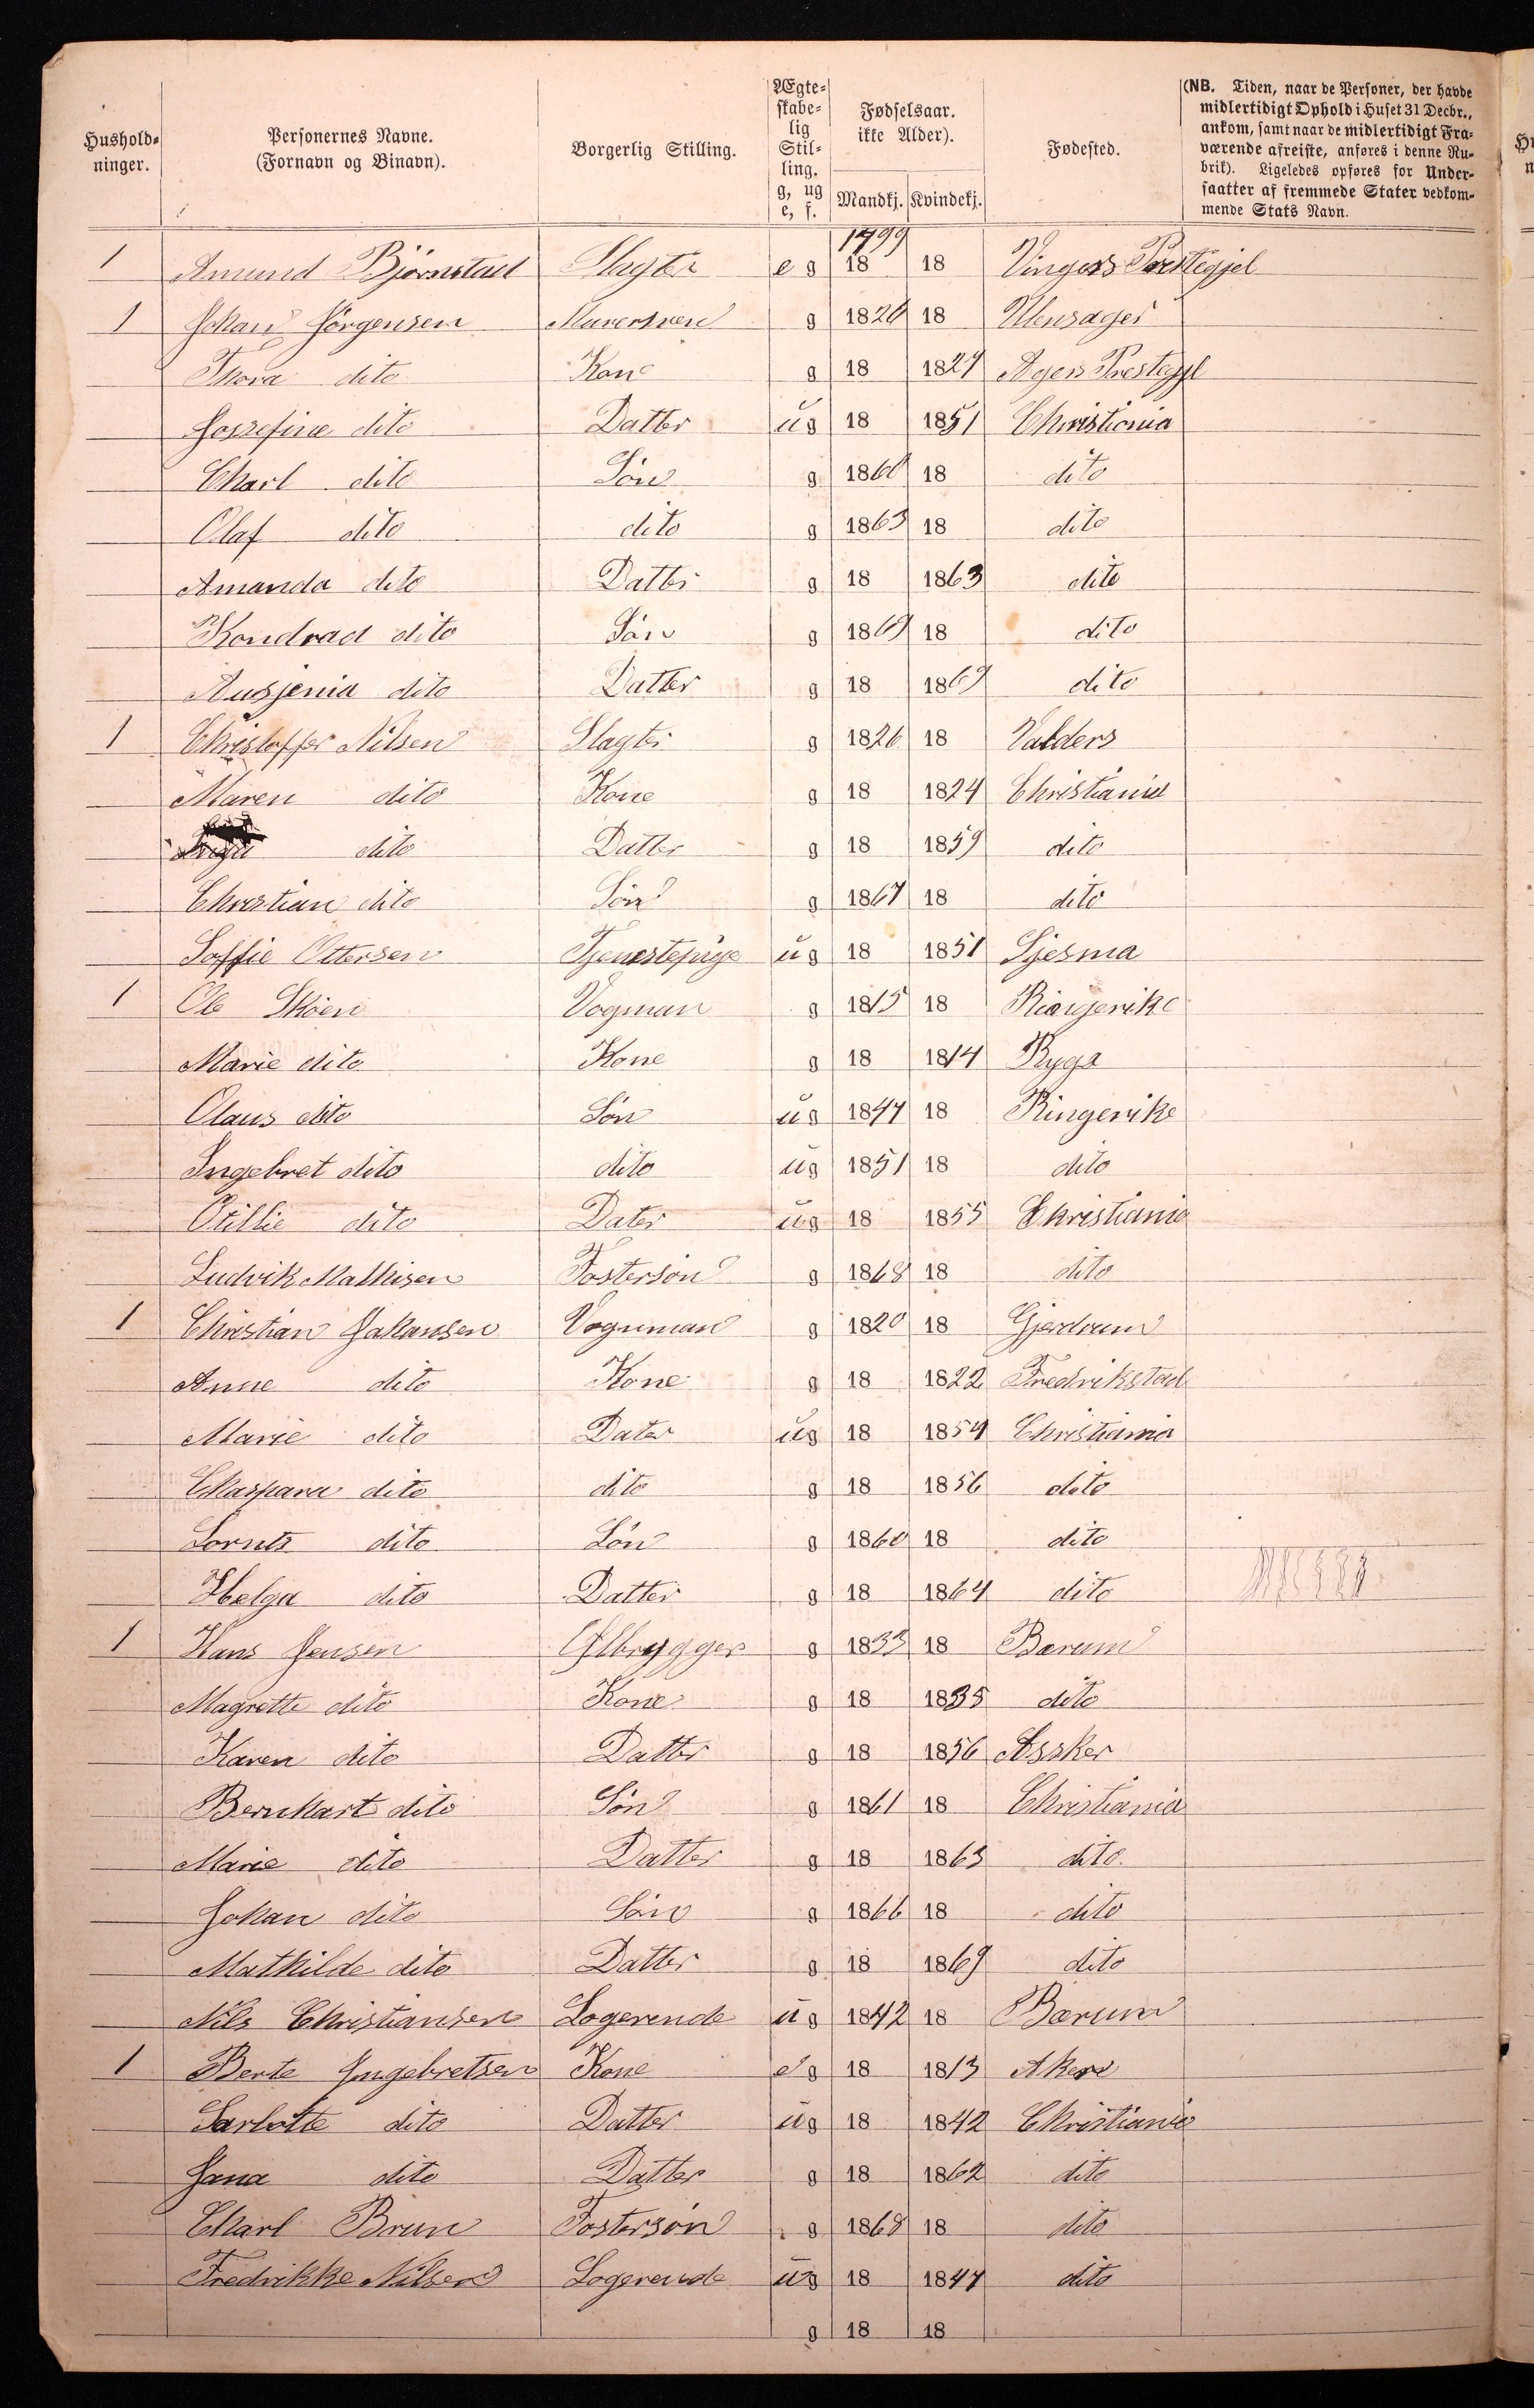 Hushold-
ninger.
Personernes Navne.
(Fornavn og Binavn).
Borgerlig Stilling.
Ægte-
skabe-
lig
Stil-
ling.
g, ug
e, f.
Fødselsaar.
ikke Alder).
Mandkj. Kvindekj.
Fødested.
(NB. Tiden, naar de Personer, der havde
midlertidigt Ophold i Huset 31 Decbr.,
ankom, samt naar de midlertidigt Fra-
værende afreiste, anføres i denne Ru-
brik). Ligeledes opføres for Under-
saatter af fremmede Stater vedkom-
mende Stats Navn.
1 Amund Bjørnstad Slagter e g 1799 18 18 Vingers Prestegjel
1 Johan Jørgensen g 1826 18 Ulensager
Thora dito Kone g 18 1827 Agers Prestegjl
Jossefine dito Datter ug 18 1851 Christiania
Charl dito Søn g 1860 18 dito
Olaf dito dito g 1863 18 dito
Amanda dito Datter g 18 1863 dito
Kondrad dito Søn g 1869 18 dito
Ausjenia dito Datter g 18 1869 dito
1 Christoffer Nilsen Slagter g 1826 18 Valders
Maren dito Kone g 18 1824 Christiania
dito Datter g 18 1859 dito
Christian dito Søn g 1867 18 dito
Soffie Ottersen Tjenestepige ug 18 1851 Sjesma
1 Ole Skøien Vogman g 1815 18 Ringerike
Marie dito Kone g 18 1814 Ryga
Olaus dito Søn ug 1847 18 Ringerike
Ingebret dito dito ug 1851 18 dito
Otillie dito Dater ug 18 1855 Christiania
Ludvik Mathisen Fostersøn g 1868 18 dito
1 Christian Johansen Vognman g 1820 18 Gjerdrum
Anne dito Kone g 18 1822 Fredrikstad
Marie dito Dater ug 18 1854 Christiania
Chaspara dito dito g 18 1856 dito
Lornts dito Søn g 1860 18 dito
Helga dito Datter g 18 1864 dito
1 Hans Jensen Ølbrygger g 1833 18 Bærum
Magrette dito Kone g 18 1835 dito
Karen dito Datter g 18 1856 Assker
Bernhart dito Søn g 1861 18 Christiania
Marie dito Datter g 18 1863 dito
Johan dito Søn g 1866 18 dito
Mathilde dito Datter g 18 1869 dito
Nils Christiansen Logerende ug 1842 18 Bærum
1 Berte Ingebretsen Kone e g 18 1813 Akers
Sarlotte dito Datter ug 18 1842 Christiania
Jana dito Datter g 18 1862 dito
Charl Brun Fostersøn g 1868 18 dito
Fredrikke Nilsen Logerende ug 18 1847 dito
g 18 18